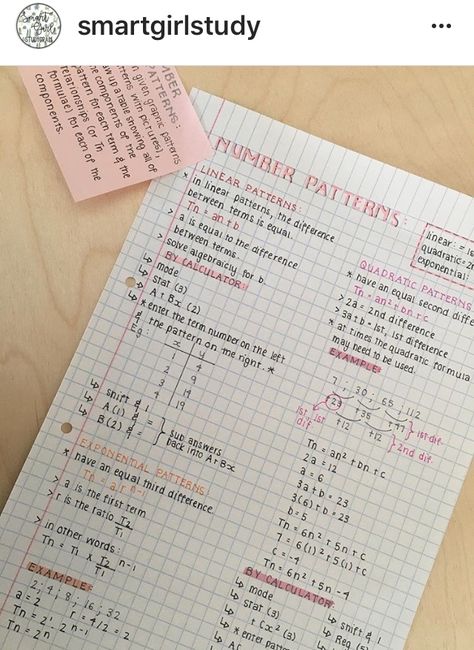 smartgirlstudy
Smart Girl
STUDYGRAM
MBER
PATTERNS:
given graphic patterns
with pictures),
up a table showing all of
components of the
pattern for each term & the
relationships (or Tn
formulae) for each of the
components.
NUMBER PATTERNS:
LINEAR PATTERNS:
* in linear patterns, the difference
between terms is equal.
Tn = an + b
> a is equal to the difference
between terms.
> solve algebraically for b.
BY CALCULATOR:
↳ mode
↳ stat (3)
↳ A+Bx (2)
↳ * enter the term number on the left
& the pattern on the right. *
Eg: x y
1 4
2 9
3 14
4 19
↳ shift & 1
↳ A (1) =
↳ B (2) =
sub answers
back into A+Bx
EXPONENTIAL PATTERNS
* have an equal third difference
Tn = a.r n-1
> a is the first term
> r is the ratio T2/T1
> in other words:
Tn = T1 x T2/T1 n-1
EXAMPLE:
2; 4; 8; 16; 32
a = 2 r = 4/2 = 2
Tn = 2¹ · 2 n-1
Tn = 2ⁿ
linear: =
quadratic =
exponential:
QUADRATIC PATTERNS
* have an equal second
Tn = an² + bn + c
> 2a = 2nd difference
> 3a+b = 1st, 1st difference
* at times the quadratic formula
may need to be used.
EXAMPLE:
7 ; 30 ; 65 ; 112
23 +35 +47 } 1st dif.
1st 1st dif. +12 +12 } 2nd dif.
Tn = an² + bn + c
2a = 12
a = 6
3a + b = 23
3(6) + b = 23
b = 5
Tn = 6n² + 5n + c
7 = 6(1)² + 5(1) + c
c = -4
Tn = 6n² + 5n - 4
BY CALCULATOR:
↳ mode
↳ stat (3)
↳ + cx² (3)
↳ * enter
↳ shift & 1
↳ Reg (5)